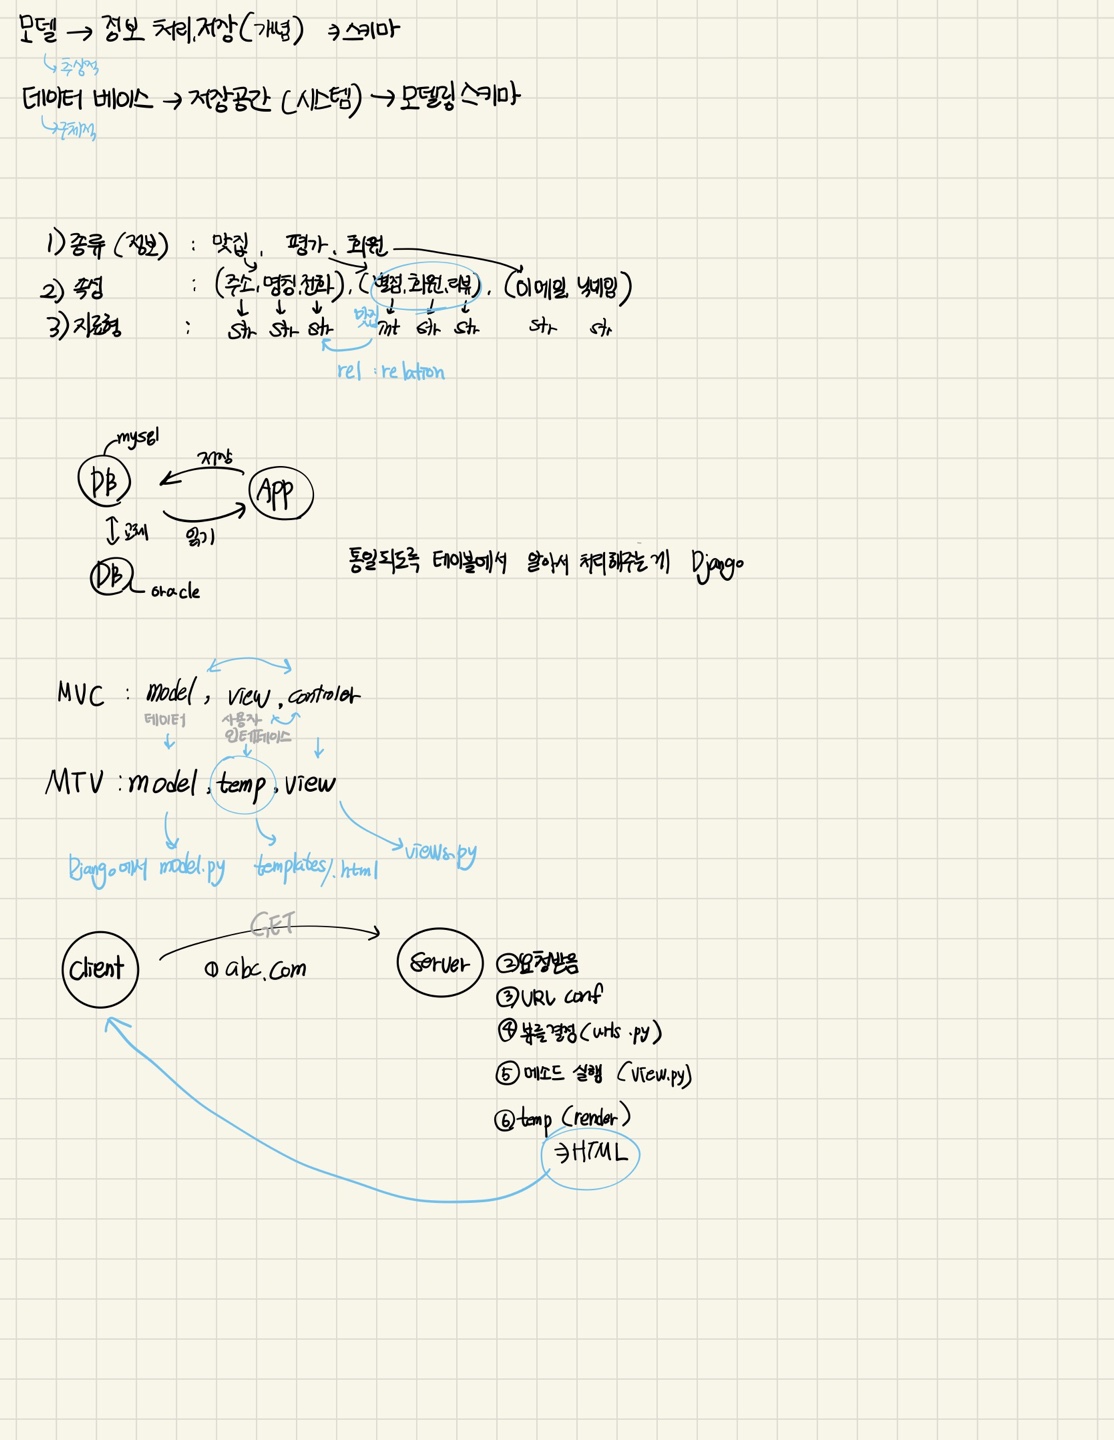 모델 → 정보 처리, 저장(개념) ⇒ 스키마
↳ 추상적
데이터 베이스 → 저장공간 (시스템) → 모델링 스키마
↳ 구체적
1) 종류 (정보) : 맛집, 평가, 회원
2) 속성 : (주소, 명칭, 전화), (별점, 회원, 리뷰), (이메일, 닉네임)
3) 자료형 : str str str 맛집 int str str str str
rel : relation
mysql
DB 저장 App
교체 읽기
DB oracle
통일되도록 테이블에서 알아서 처리해주는게 Django
MVC : model, view, controler
데이터 사용자 인터페이스
MTV : model, temp, view
Django에서 model.py templates/.html views.py
GET
Client ① abc.com Server ② 요청받음
③ URL conf
④ 뷰를 결정 (urls.py)
⑤ 메소드 실행 (view.py)
⑥ temp (render)
⇒ HTML